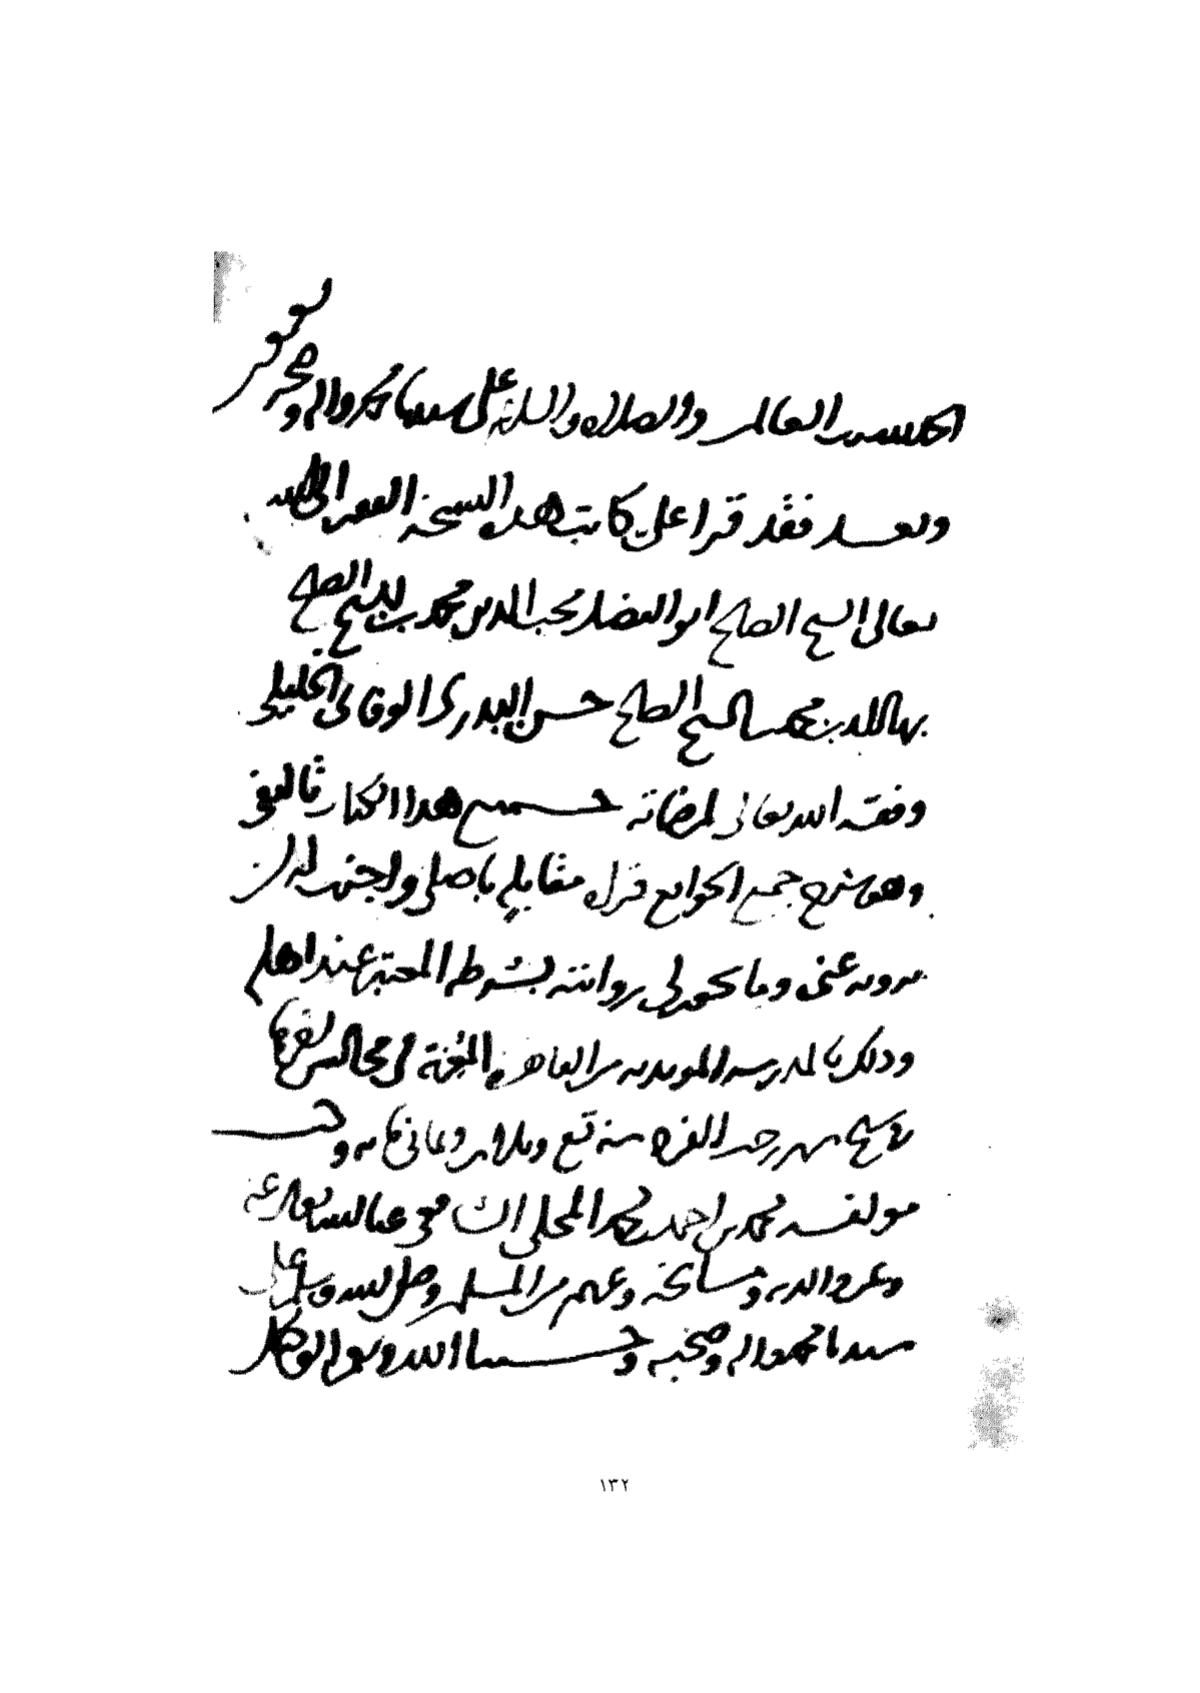 الحمد لله رب العالمين والصلاة والسلام على سيدنا محمد وآله وصحبه
وبعد فقد قرأ علي كاتب هذه النسخة الفقير إلى الله
تعالى الشيخ الصالح أبو الفضل محب الدين محمد بن الشيخ الصالح
بهاالدين محمد بن الشيخ الصالح حسن البدري الوفائي الخليلي
وفقه الله تعالى لمرضاته جميع هذا الكتاب تاليفي
وهو شرح جمع الجوامع قراة مقابلة باصلي واجزت له أن
يرويه عني وما يجوز لي روايته بشرطه المعتبر عند اهله
وذلك بالمدرسة المويدية من القاهرة المعزية في مجالس اخرها
تاسع شهر رجب الفرد سنة تسع وثمانمائة وكتب
مولفه محمد بن احمد بن محمد المحلي الشافعي عفا الله تعالى عنه
وعن والديه ومشايخه وعنهم من المسلمين وصلى الله وسلم على
سيدنا محمد واله وصحبه وحسبنا الله ونعم الوكيل
١٣٢